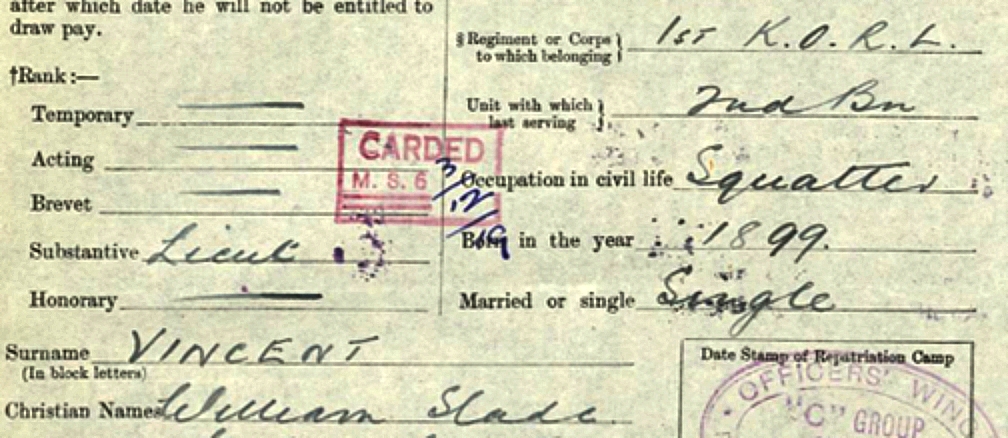 after which date he will not be entitled to
draw pay.
†Rank:—
Temporary
Acting
Brevet
Substantive Lieut
Honorary
Surname VINCENT
(In block letters)
Christian Names William Slade
§ Regiment or Corps } 1st K.O.R.L.
to which belonging }
Unit with which } 2nd Bn
last serving }
Occupation in civil life Squatter
Born in the year 1899.
Married or single Single
CARDED
M. S. 6
3/12/19
Date Stamp of Repatriation Camp
OFFICERS' WING
"C" GROUP